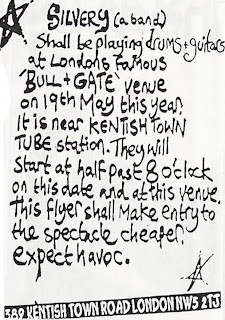 SILVERY (a band)
Shall be playing drums + guitars
at Londons famous
'BULL + GATE' venue
on 19th May this year.
It is near KENTISH TOWN
TUBE station. They will
Start at half past 8 o'clock
on this date and at this venue.
This flyer shall make entry to
the spectacle cheaper.
expect havoc.
389 KENTISH TOWN ROAD LONDON NW5 2TJ